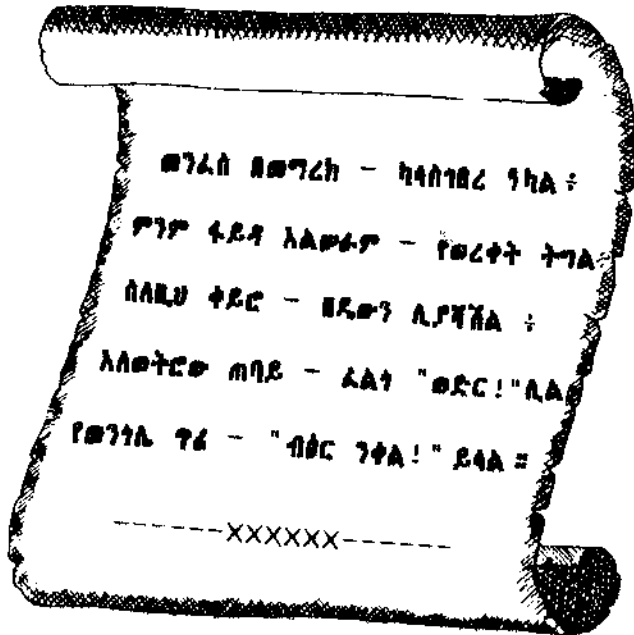 መንፈስ በመማረክ - ካላስገበረ ኃካል ፥
ምንም ፋይዳ አልወራም - የወረቀት ትግል፥
ስለዚህ ቀይሮ - ዘዴውን ሊያሻሽል ፥
አለወትሮው ጠባይ - ፈልጎ "ወድር!"ሲል፥
የመንግሌ ጥሪ - "ብዕር ንቀል!" ይላል ።
------XXXXXX------